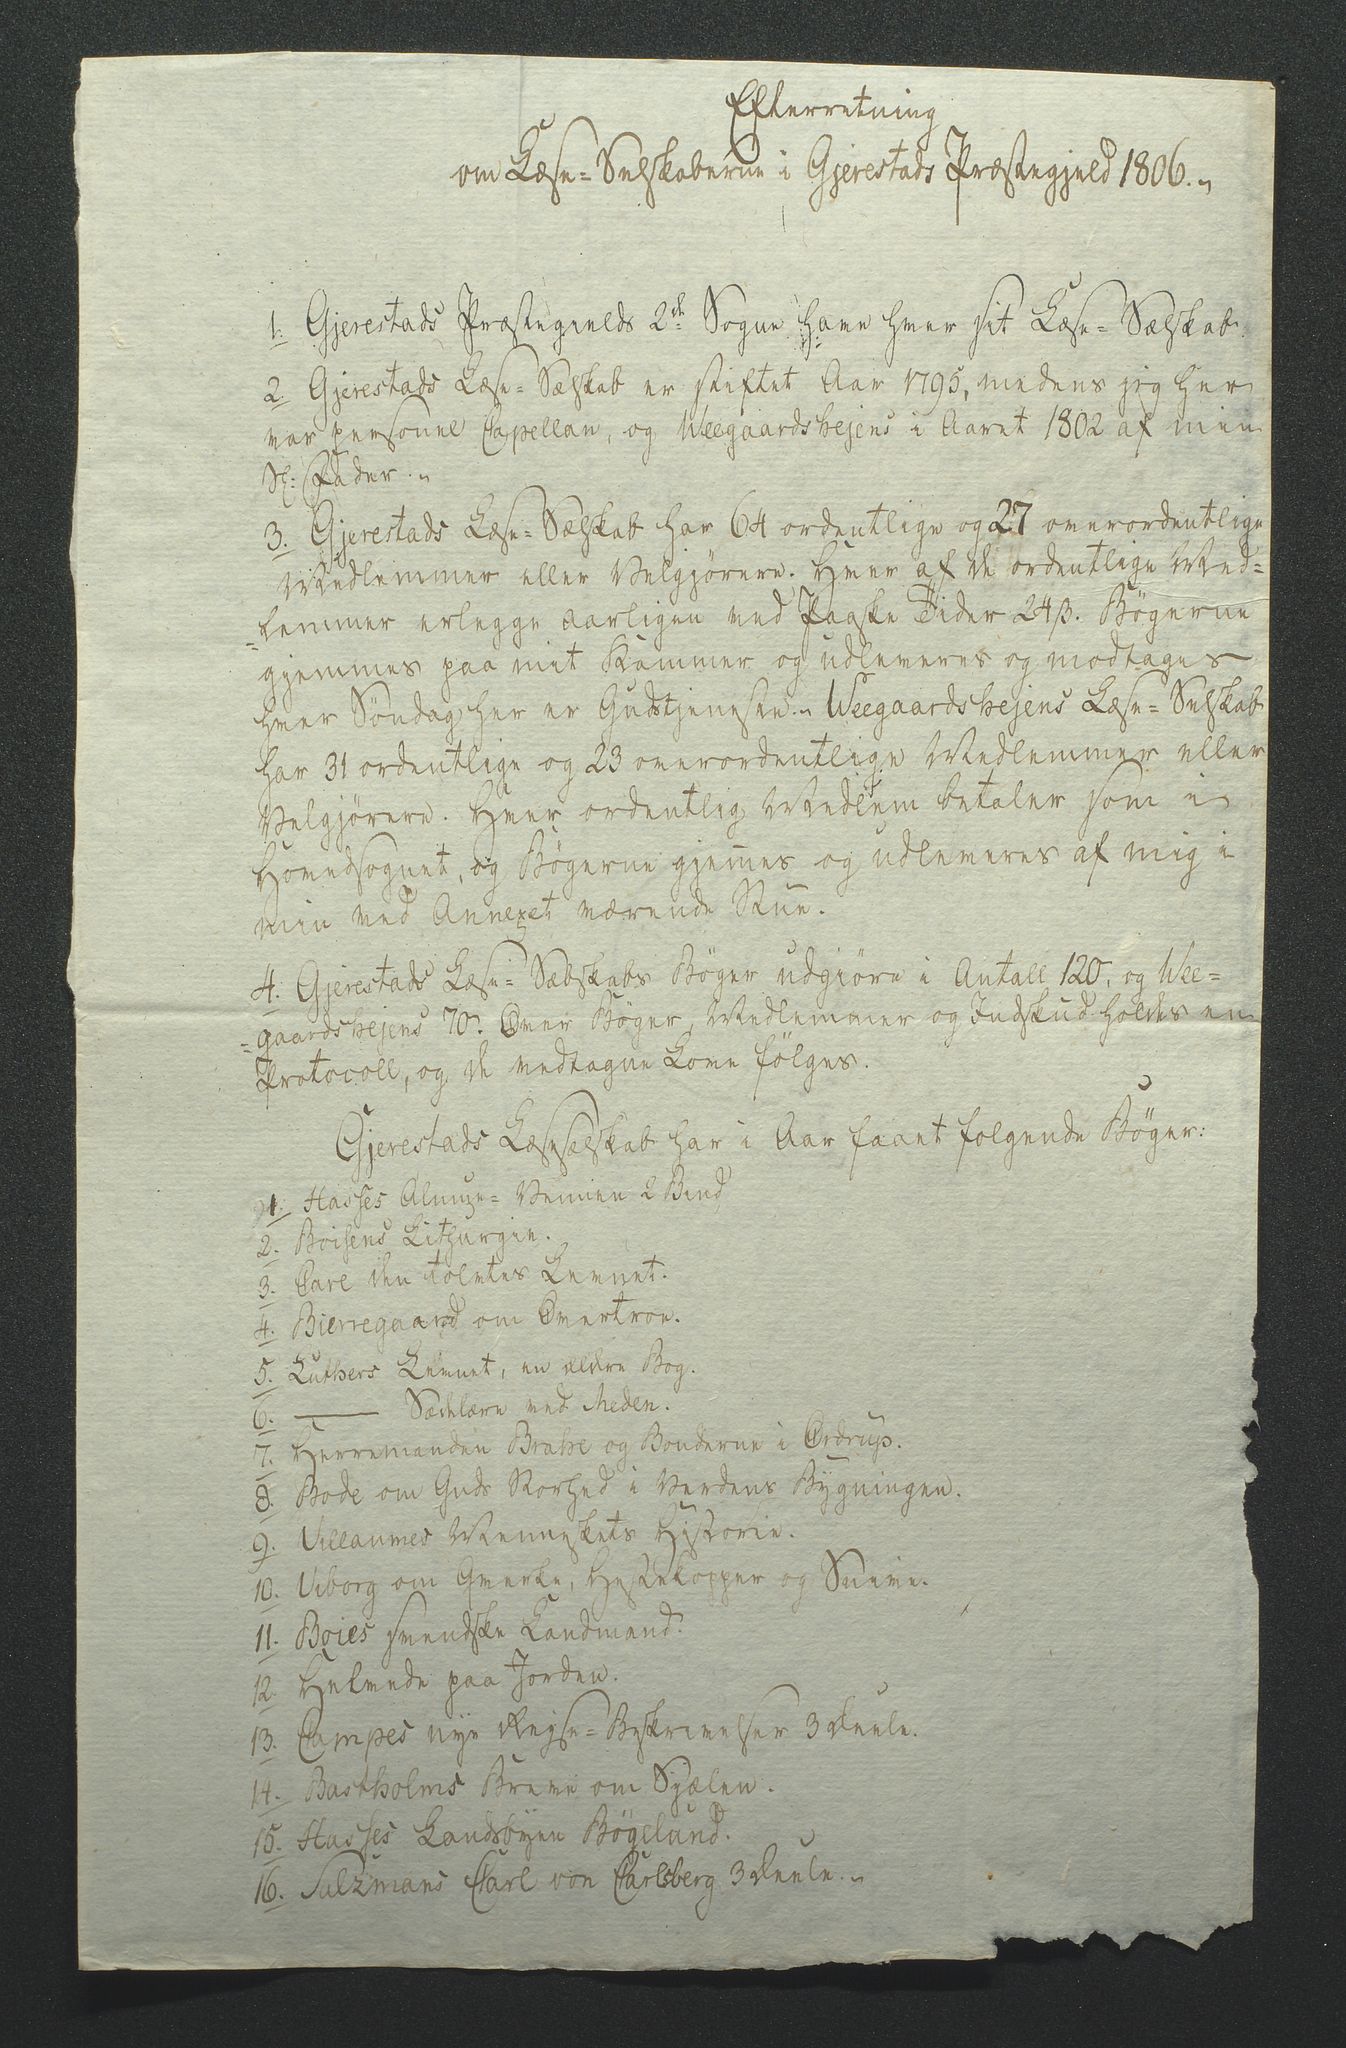 Efterretning
om Læse-Selskaberne i Gjerestads Præstegjeld 1806.
1. Gjerestads Præstegields 2de Sogne have hver sit Læse-Sælskab.
2. Gjerestads Læse-Sælskab er stiftet Aar 1795, medens jeg her
var personel Capellan, og Weegaardsheiens i Aaret 1802 af min
Sl: Fader.
3. Gjerestads Læse-Sælskab har 64 ordentlige og 27 overordentlige
Medlemmer eller Velgjörere. Hver af de ordentlige Med-
-lemmer erlegge aarligen ved Paaske Tider 24 β. Bögerne
gjemmes paa mit Kammer og udleveres og modtages
hver Söndag her er Gudstjeneste. Weegaardshejens Læse-Selskab
har 31 ordentlige og 23 overordentlige Medlemmer eller
Velgjörere. Hver ordentlig Medlem betaler som i
Hovedsognet, og Bögerne gjemes og udleveres af mig i
min ved Annexet værende Stue.
4. Gjerestads Læse-Sælskabs Böger udgiöre i Antall 120, og Wee-
-gaardshejens 70. Over Böger, Medlemmer og Indskud holdes en
Protocoll, og de vedtagne Love fölges.
Gjerestads Læsesælskab har i Aar faaet folgende Böger:
1. Hasses Almue-Vennen 2 Bind
2. Boisens Lithurgie.
3. Carl den tolvtes Levnet.
4. Bierregaard om Overtroe.
5. Luthers Levnet, en ældre Bog.
6. ——— Sædelære ved Meden.
7. Herremanden Brahe og Bonderne i Ordrup.
8. Bode om Guds Storhed i Verdens Bygningen.
9. Villaumes Menneskets Historie.
10. Viborg om Qverke, Hestekopper og Snive.
11. Boies svendske Landmand.
12. Helvede paa Jorden.
13. Campes nye Rejse-Beskrivelser 3 Deele.
14. Bastholms Breve om Sjælen.
15. Hasses Landsbyen Bögelund.
16. Salzmans Carl von Carlsberg 3 Deele.